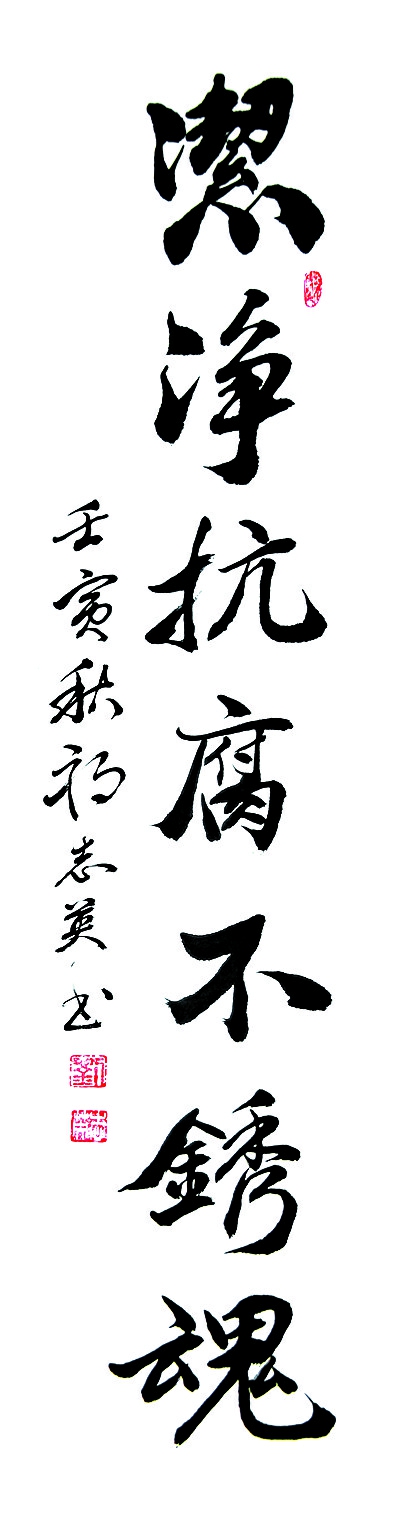 潔淨抗腐不銹魂
壬寅秋初志英书